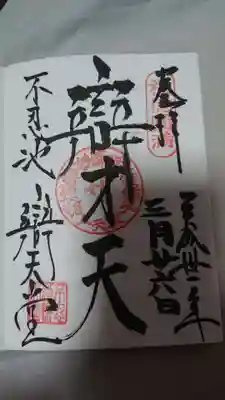 奉拝
平成卅一年
三月廿六日
辯才天
不忍池
辯天堂